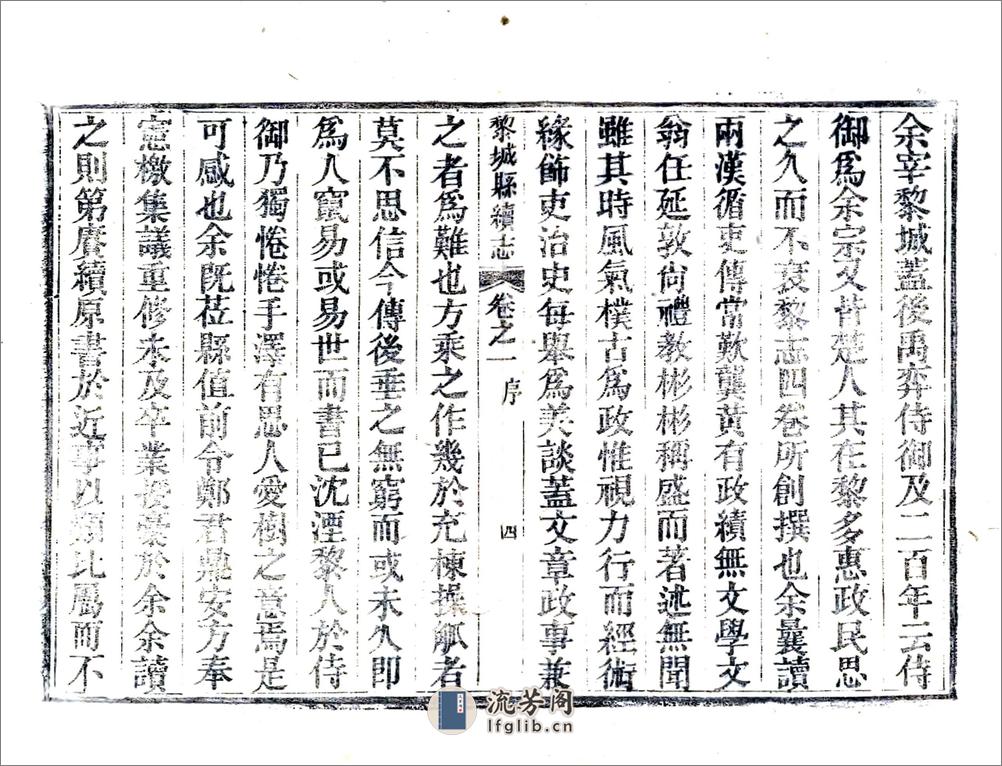 余宰黎城蓋後禹弈侍御及二百年云侍
御爲余宗又皆楚人其在黎多惠政民思
之久而不衰黎志四卷所創撰也余曩讀
兩漢循吏傳常歎龔黃有政績無文學文
翁任延敦尙禮教彬彬稱盛而著述無聞
雖其時風氣樸古爲政惟視力行而經術
緣飾吏治史每舉爲美談蓋文章政事兼
黎城縣續志 卷之一 序 四
之者爲難也方乘之作幾於充棟操觚者
莫不思信今傳後垂之無窮而或未久卽
爲人竄易或易世而書已沈湮黎人於侍
御乃獨惓惓手澤有思人愛樹之意焉是
可感也余既莅縣值前令鄭君鼎安方奉
憲檄集議重修未及卒業授稾於余余讀
之則第賡續原書於近事以類比屬而不
流芳阁
lfglib.cn